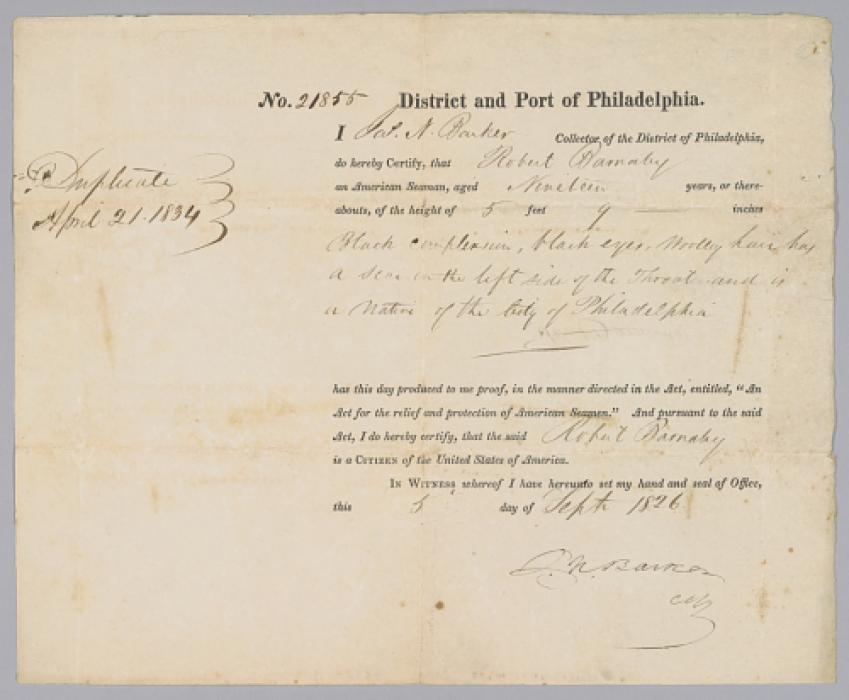 No. 21855 District and Port of Philadelphia.
I Jas. N. Barker Collector of the District of Philadelphia,
do hereby Certify, that Robert Barnaby
an American Seaman, aged Nineteen years, or there-
abouts, of the height of 5 feet 9 inches
Black complexion, black eyes, Woolley hair has
a scar on the left side of the Throat and is
a Native of the City of Philadelphia
Duplicate
April 21. 1834
has this day produced to me proof, in the manner directed in the Act, entitled, "An
Act for the relief and protection of American Seamen." And pursuant to the said
Act, I do hereby certify, that the said Robert Barnaby
is a CITIZEN of the United States of America.
IN WITNESS whereof I have hereunto set my hand and seal of Office,
this 5 day of Septr 1826
J. N. Barker